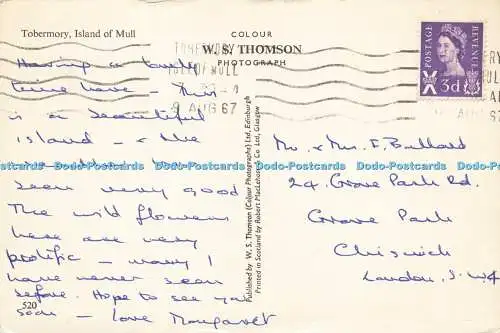 Tobermory, Island of Mull
COLOUR
W. S. THOMSON
PHOTOGRAPH
TOBERMORY
ISLE OF MULL
9 AUG 67
POSTAGE
REVENUE
3d
Having a lovely
time here - this
is a beautiful
island - & the
weather has
been very good
The wild flowers
here are very
prolific - many I
have never seen
before. Hope to see you
soon - Love Margaret
520
Published by W. S. Thomson (Colour Photographs) Ltd, Edinburgh
Printed in Scotland by Robert MacLehose & Co Ltd, Glasgow
Mr. & Mrs. F. Bullard
24, Grove Park Rd.
Grove Park
Chiswick
London, S. W4
Dodo-Postcards Dodo-Postcards Dodo-Postcards Dodo-Postcards Dodo-Postcards Dodo-Postcards